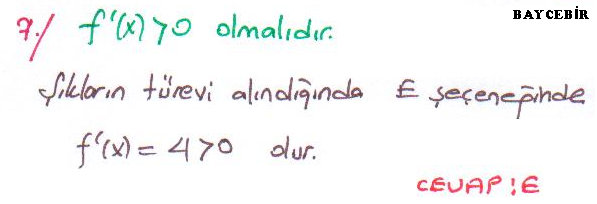 BAYCEBİR
7./ f'(x)>0 olmalıdır.
Şıkların türevi alındığında E şeçeneğinde
f'(x)=4>0 dur.
CEVAP:E